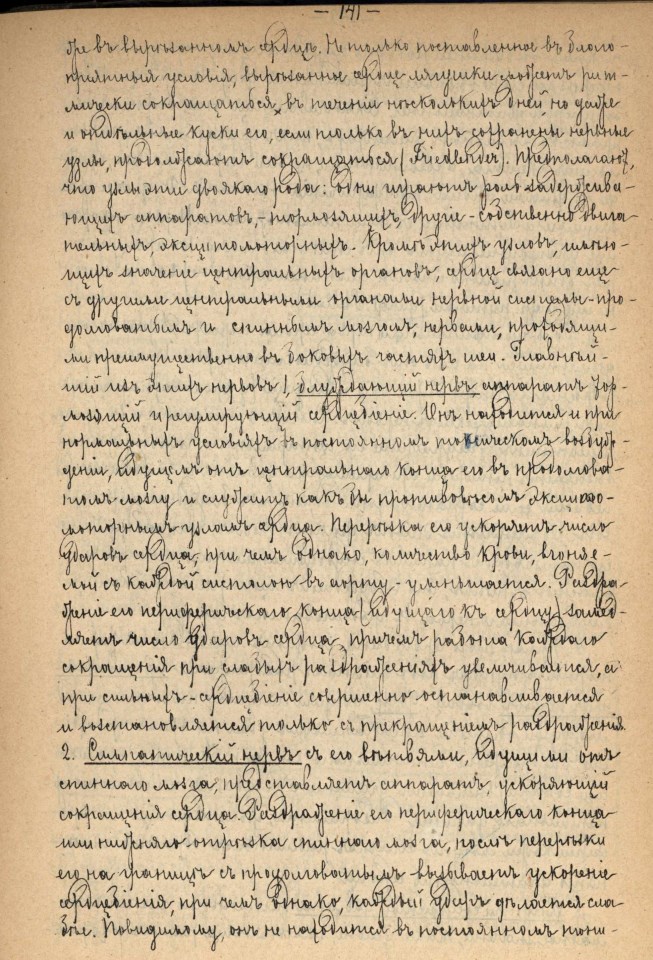 — 141 —
бре въ вырѣзанномъ сердцѣ. Не только поставленное въ благо-
пріятныя условія, вырѣзанное сердце лягушки можетъ рит-
мически сокращаться въ теченіи нѣсколькихъ дней, но даже
и отдѣльные куски его, если только въ нихъ сохранены нервные
узлы, продолжаютъ сокращаться (Friedlender). Предполагаютъ,
что узлы эти двоякаго рода: одни играютъ роль задержива-
ющихъ аппаратовъ, - тормозящихъ, другіе - собственно двига-
тельныхъ, эксцитомоторныхъ. Кромѣ этихъ узловъ, имѣю-
щихъ значеніе центральныхъ органовъ, сердце связано еще
съ другими центральными органами нервной системы - про-
долговатымъ и спиннымъ мозгомъ, нервами, проходящи-
ми преимущественно въ боковыхъ частяхъ шеи. Главнѣй-
шій изъ этихъ нервовъ 1, блуждающій нервъ аппаратъ тор-
мозящій и регулирующій сердцебіеніе. Онъ находится и при
нормальныхъ условіяхъ въ постоянномъ тоническомъ возбуж-
деніи, идущемъ отъ центральнаго конца его въ продолгова-
томъ мозгу и служитъ какъ бы противовѣсомъ эксцито-
моторнымъ узламъ сердца. Перерѣзка его ускоряетъ число
ударовъ сердца, при чемъ однако, количество крови, вгоняе-
мой съ каждой систолою въ аорту - уменьшается. Раздра-
женіе его периферическаго конца (идущаго къ сердцу) замед-
ляетъ число ударовъ сердца, причемъ работа каждаго
сокращенія при слабыхъ раздраженіяхъ увеличивается, а
при сильныхъ - сердцебіеніе совершенно останавливается
и возстановляется только съ прекращеніемъ раздраженія.
2. Симпатическій нервъ съ его вѣтвями, идущими отъ
спиннаго мозга, представляетъ аппаратъ, ускоряющій
сокращенія сердца. Раздраженіе его периферическаго конца
или нижняго отрѣзка спиннаго мозга, послѣ перерѣзки
его на границѣ съ продолговатымъ вызываетъ ускореніе
сердцебіенія, при чемъ однако, каждый ударъ дѣлается сла-
бѣе. Повидимому, онъ не находится въ постоянномъ тони-